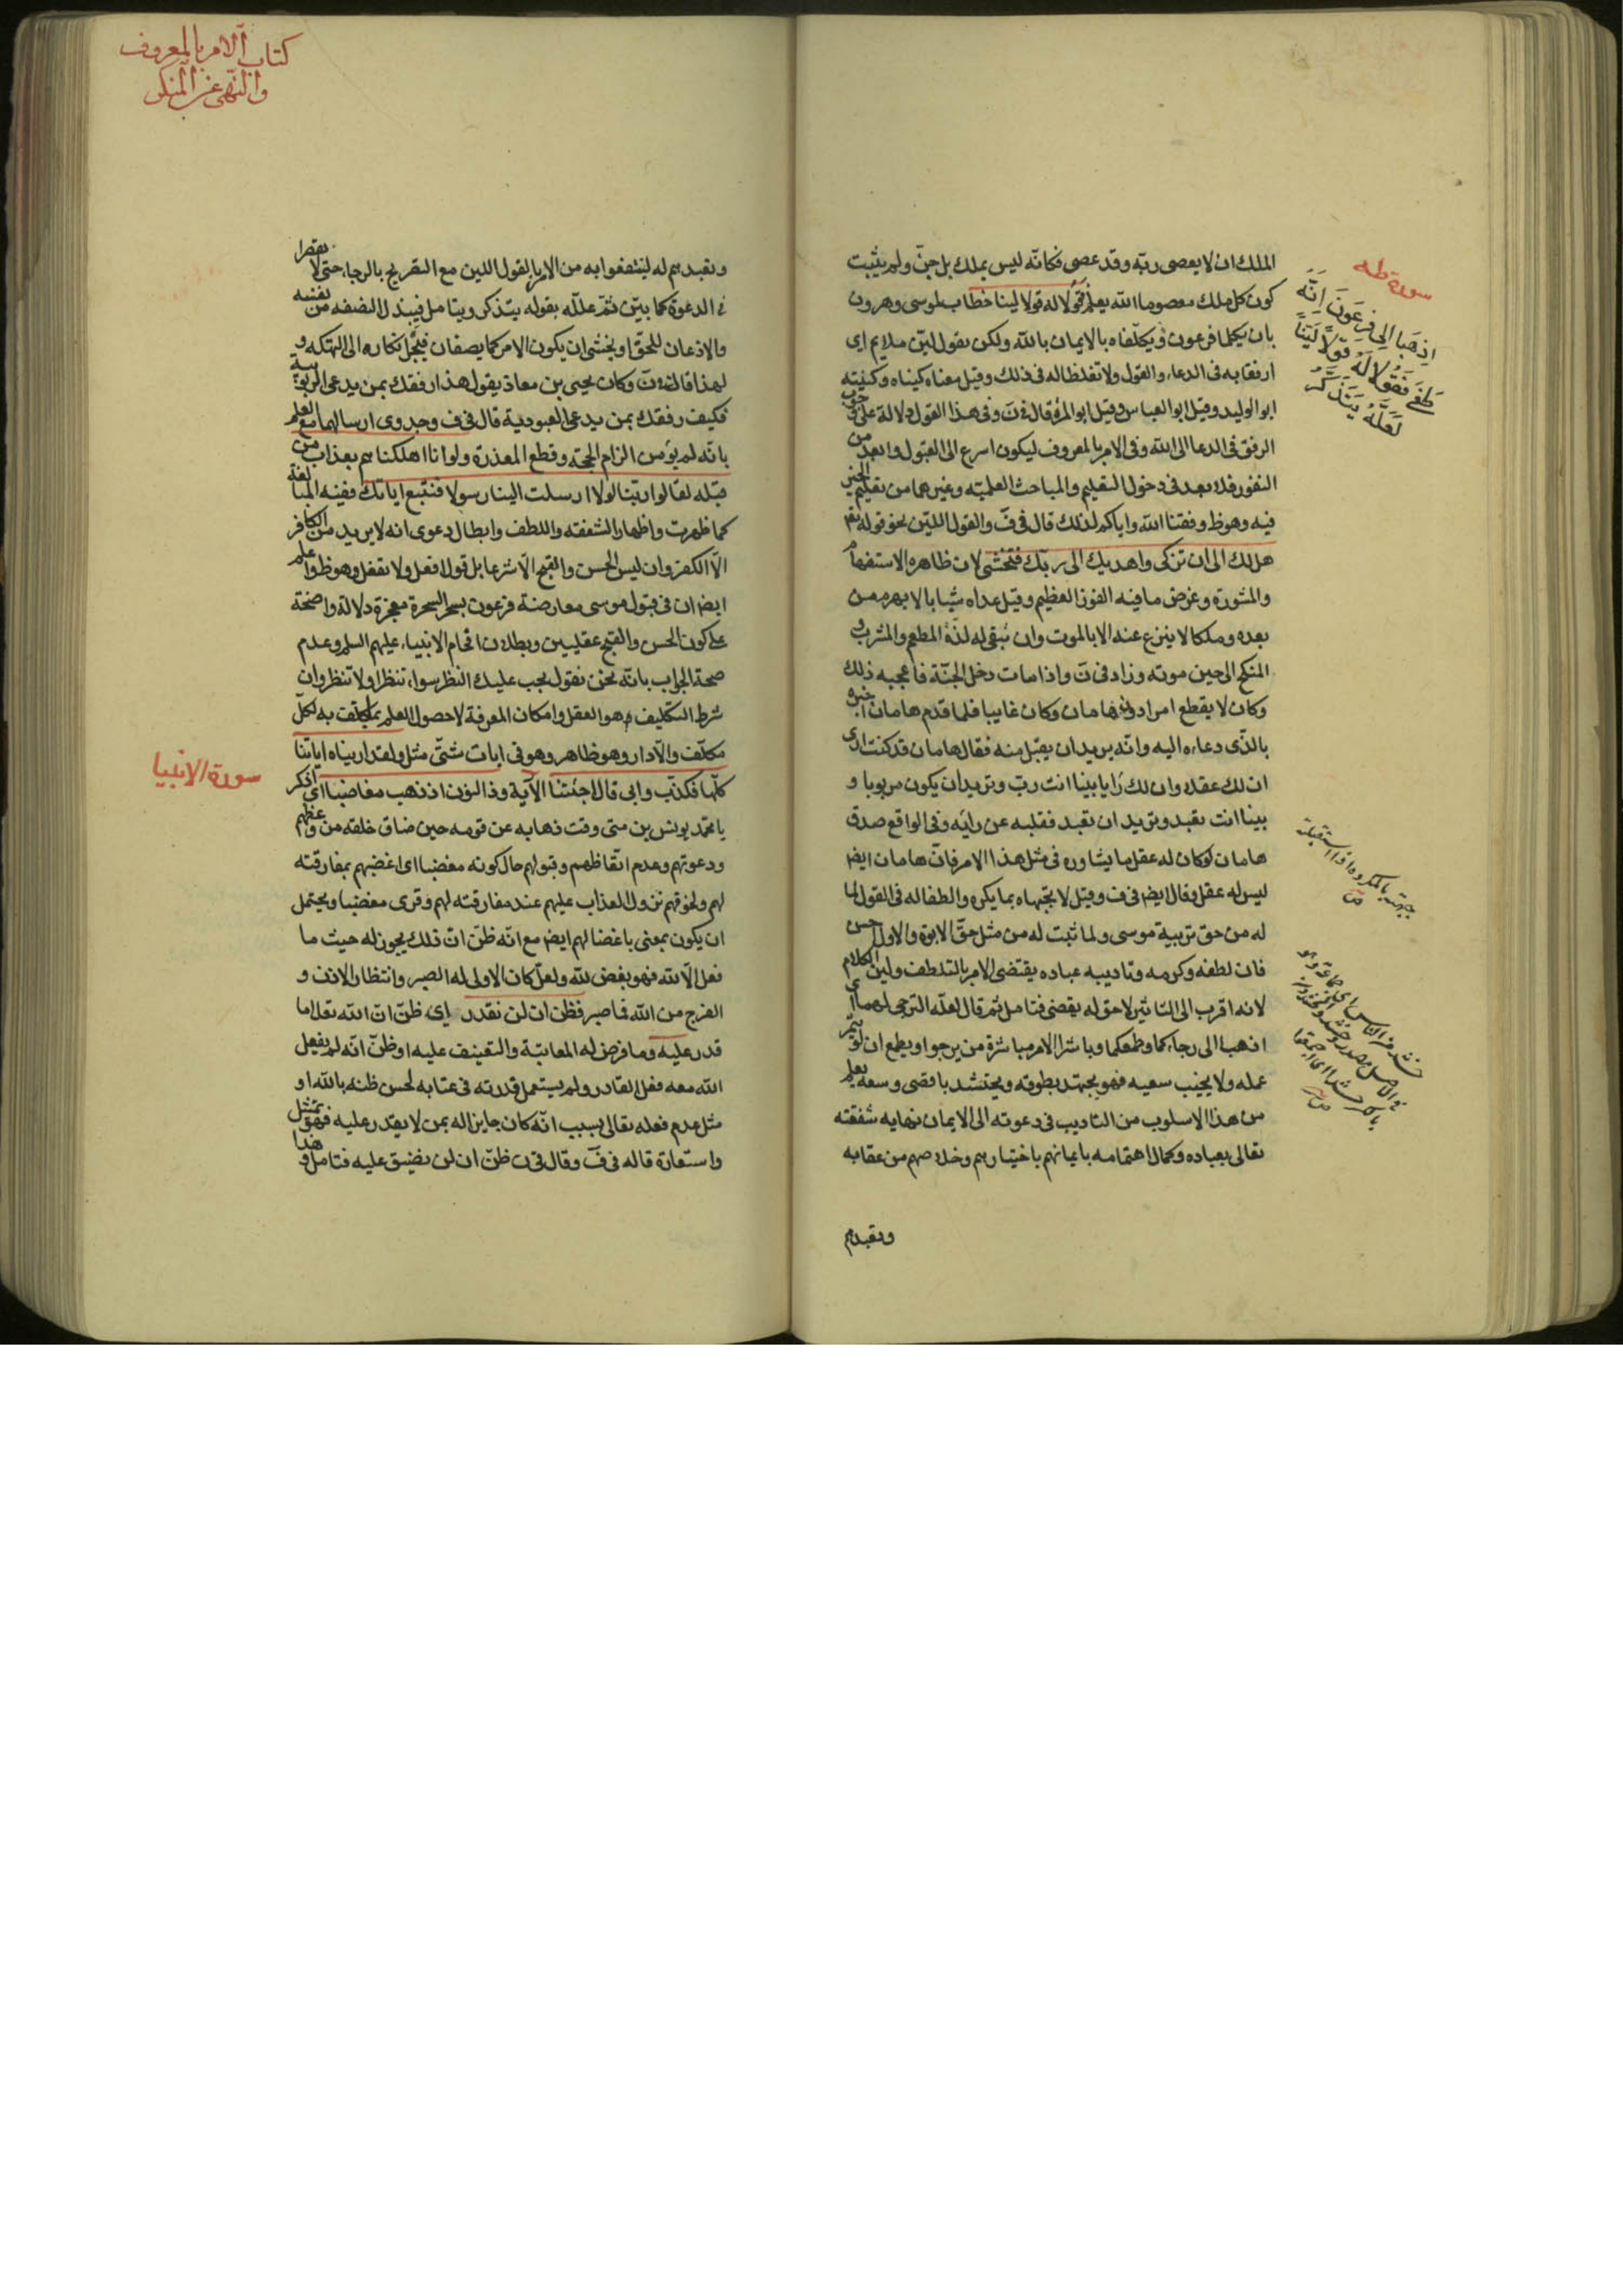 الملك ان لا يعصى ربّه وقد عصى فكانّه ليس بملك بل جنّ ولم يثبت
كون كل ملك معصوما الله يعلم فقولا له قولا لينا خطاب لموسى وهرون
بان يكلما فرعون ويكلّفاه بالايمان بالله ولكن بقول ليّن ملايم اى
ارفقا به فى الدعاء والقول ولا تغلظا له فى ذلك وقيل معناه كنياه وكنيته
ابو الوليد وقيل ابو العباس وقيل ابو المرّة قال فى ن وفى هذا القول دلالة على
الرفق فى الدعا الى الله وفى الامر بالمعروف ليكون اسرع الى القبول وابعد من
النفور فلا بعد فى دخول التعليم والمباحث العلميّة وغيرهما من تعليم الخير
فيه وهو ظ وفقنا الله واياكم لذلك قال فى ف والقول الليّن نحو قوله تع
هل لك الى ان تزكى واهديك الى ربّك فتخشى لان ظاهره الاستفهام
والمشورة وعرض ما فيه الفوز العظيم وقيل عداه شبابا لا يهرم من
بعده وملكا لا ينزع عنه الا بالموت وان تبقى له لذّة المطعم والمشرب و
المنكح الى حين موته وزاد فى ن واذا مات دخل الجنّة فاعجبه ذلك
وكان لا يقطع امرا دون هامان وكان غايبا فلما قدم هامان اخبره
بالّذى دعاه اليه وانّه يريد ان يقبل منه فقال هامان قد كنت ارى
ان لك عقلا وان لك رايا بينا انت ربّ وتريد ان يكون مربوبا و
بينا انت تعبد وتريد ان تعبد فقلبه عن رايه وفى الواقع صدق
هامان لو كان له عقل ما يشاوره فى مثل هذا الامر فانّ هامان ايض
ليس له عقل وقال ايض فى ف وقيل لا تجبهاه بما يكره والطفا له فى القول لما
له من حق تربية موسى ولما ثبت له من مثل حقّ الابوة والاول احسن
فان لطفه وكرمه وتاديبه عباده يقتضى الامر بالتلطف ولين الكلام
لانه اقرب الى التاثير لا حق له يقضى فتامل ثم قال لعلّه الترجى لهما اى
اذهبا الى رجاءكما وطمعكما وباشرا الامر مباشرة من يرجو او يطمع ان يثمر
عمله ولا يخيب سعيه فهو يجتهد بطوقه ويحتشد باقصى وسعه يعلم
من هذا الاسلوب من التاديب فى دعوته الى الايمان نهايه شفقته
تعالى بعباده وكمال اهتمامه بايمانهم باختيارهم وخلاصهم من عقابه
وتعبدهم
سورة طه
اِذهَبَا اِلى فِرعَونَ اِنَّهُ
طَغى فَقُولا لَهُ قَولاً لَيّناً
لَعَلَّهُ يَتَذَكَّرُ
جبهته بالمكروه اذا استقبلته
كتاب الامر بالمعروف
والنّهى عن المنكر
وتعبدهم له لينتفعوا به من الامر بالقول اللين مع التصريح بالرجاء حتى لا يقصرا
فى الدعوة كما بيّن ثمّ علّله بقوله يتذكر ويتامل فيبذل النصفه من نفسه
والاذعان للحق او يخشى ان يكون الامر كما يصفان فيجرّ انكاره الى الهلكه و
لهذا قال فى ن وكان يحيى بن معاذ يقول هذا رفقك بمن يدعى الربوبية
فكيف رفقك بمن يدعى العبودية قال فى ف وجدوى ارسالهما مع العلم
بانّه لم يؤمن الزام الحجّة وقطع المعذرة ولو انا اهلكناهم بعذاب من
قبله لقالوا ربّنا لولا ارسلت الينا رسولا فنتّبع اياتك ففيه المبالغة
كما ظهرت واظهار الشفقة واللطف وابطال دعوى انه لا يريد من الكافر
الّا الكفر وان ليس الحسن والقبح الّا شرعا بل قول افعل ولا تفعل وهو ظ واعلم
ايض ان فى قبول موسى معارضة فرعون بسحر السحرة معجزة دلالة واضحة
على كون الحسن والقبح عقليين وبطلان افحام الانبياء عليهم السلم وعدم
صحة الجواب بانّه نحن نقول يجب عليك النظر سواء تنظر او لا تنظر وان
شرط التكليف هو العقل وامكان المعرفة لا حصول العلم بما يكلّف به لكلّ
مكلّف والّا دار وهو ظاهر وهو فى ايات شتّى مثل ولقد اريناه اياتنا
كلّها فكذّب وابى قال اجئتنا الآية وذا النون اذ ذهب مغاضبا اى اذكر
يا محمّد يونس بن متى وقت ذهابه عن قومه حين ضاق خلقه من وعظهم
ودعوتهم وعدم اتعاظهم وقبولهم حال كونه مغضبا اى اغضبهم بمفارقته
لهم ولخوفهم نزول العذاب عليهم عند مفارقته لهم وقرى مغضبا ويحتمل
ان يكون بمعنى باغضا لهم ايض مع انّه ظنّ انّ ذلك يجوز له حيث ما
فعل الّا لله فهو بغض لله ولعلّ كان الاولى له الصبر وانتظار الاذن و
الفرج من الله فما صبر فظن ان لن نقدر اى ظنّ انّ الله تعالى ما
قدر عليه وما فرض له المعاتبة والتعنيف عليه او ظنّ انّه لم يفعل
الله معه فعل القادر ولم يستعمل قدرته فى عتابه لحسن ظنه بالله او
مثل عدم فعله تعالى بسبب انّه كان جايزا له بمن لا يقدر عليه فهو تمثّل
واستعارة قاله فى ف وقال فى ن ظنّ ان لن نضيق عليه فتامل و هذا
سورة الانبيا